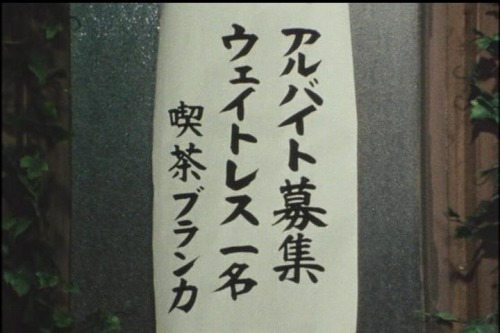 アルバイト募集
ウェイトレス一名
喫茶ブランカ